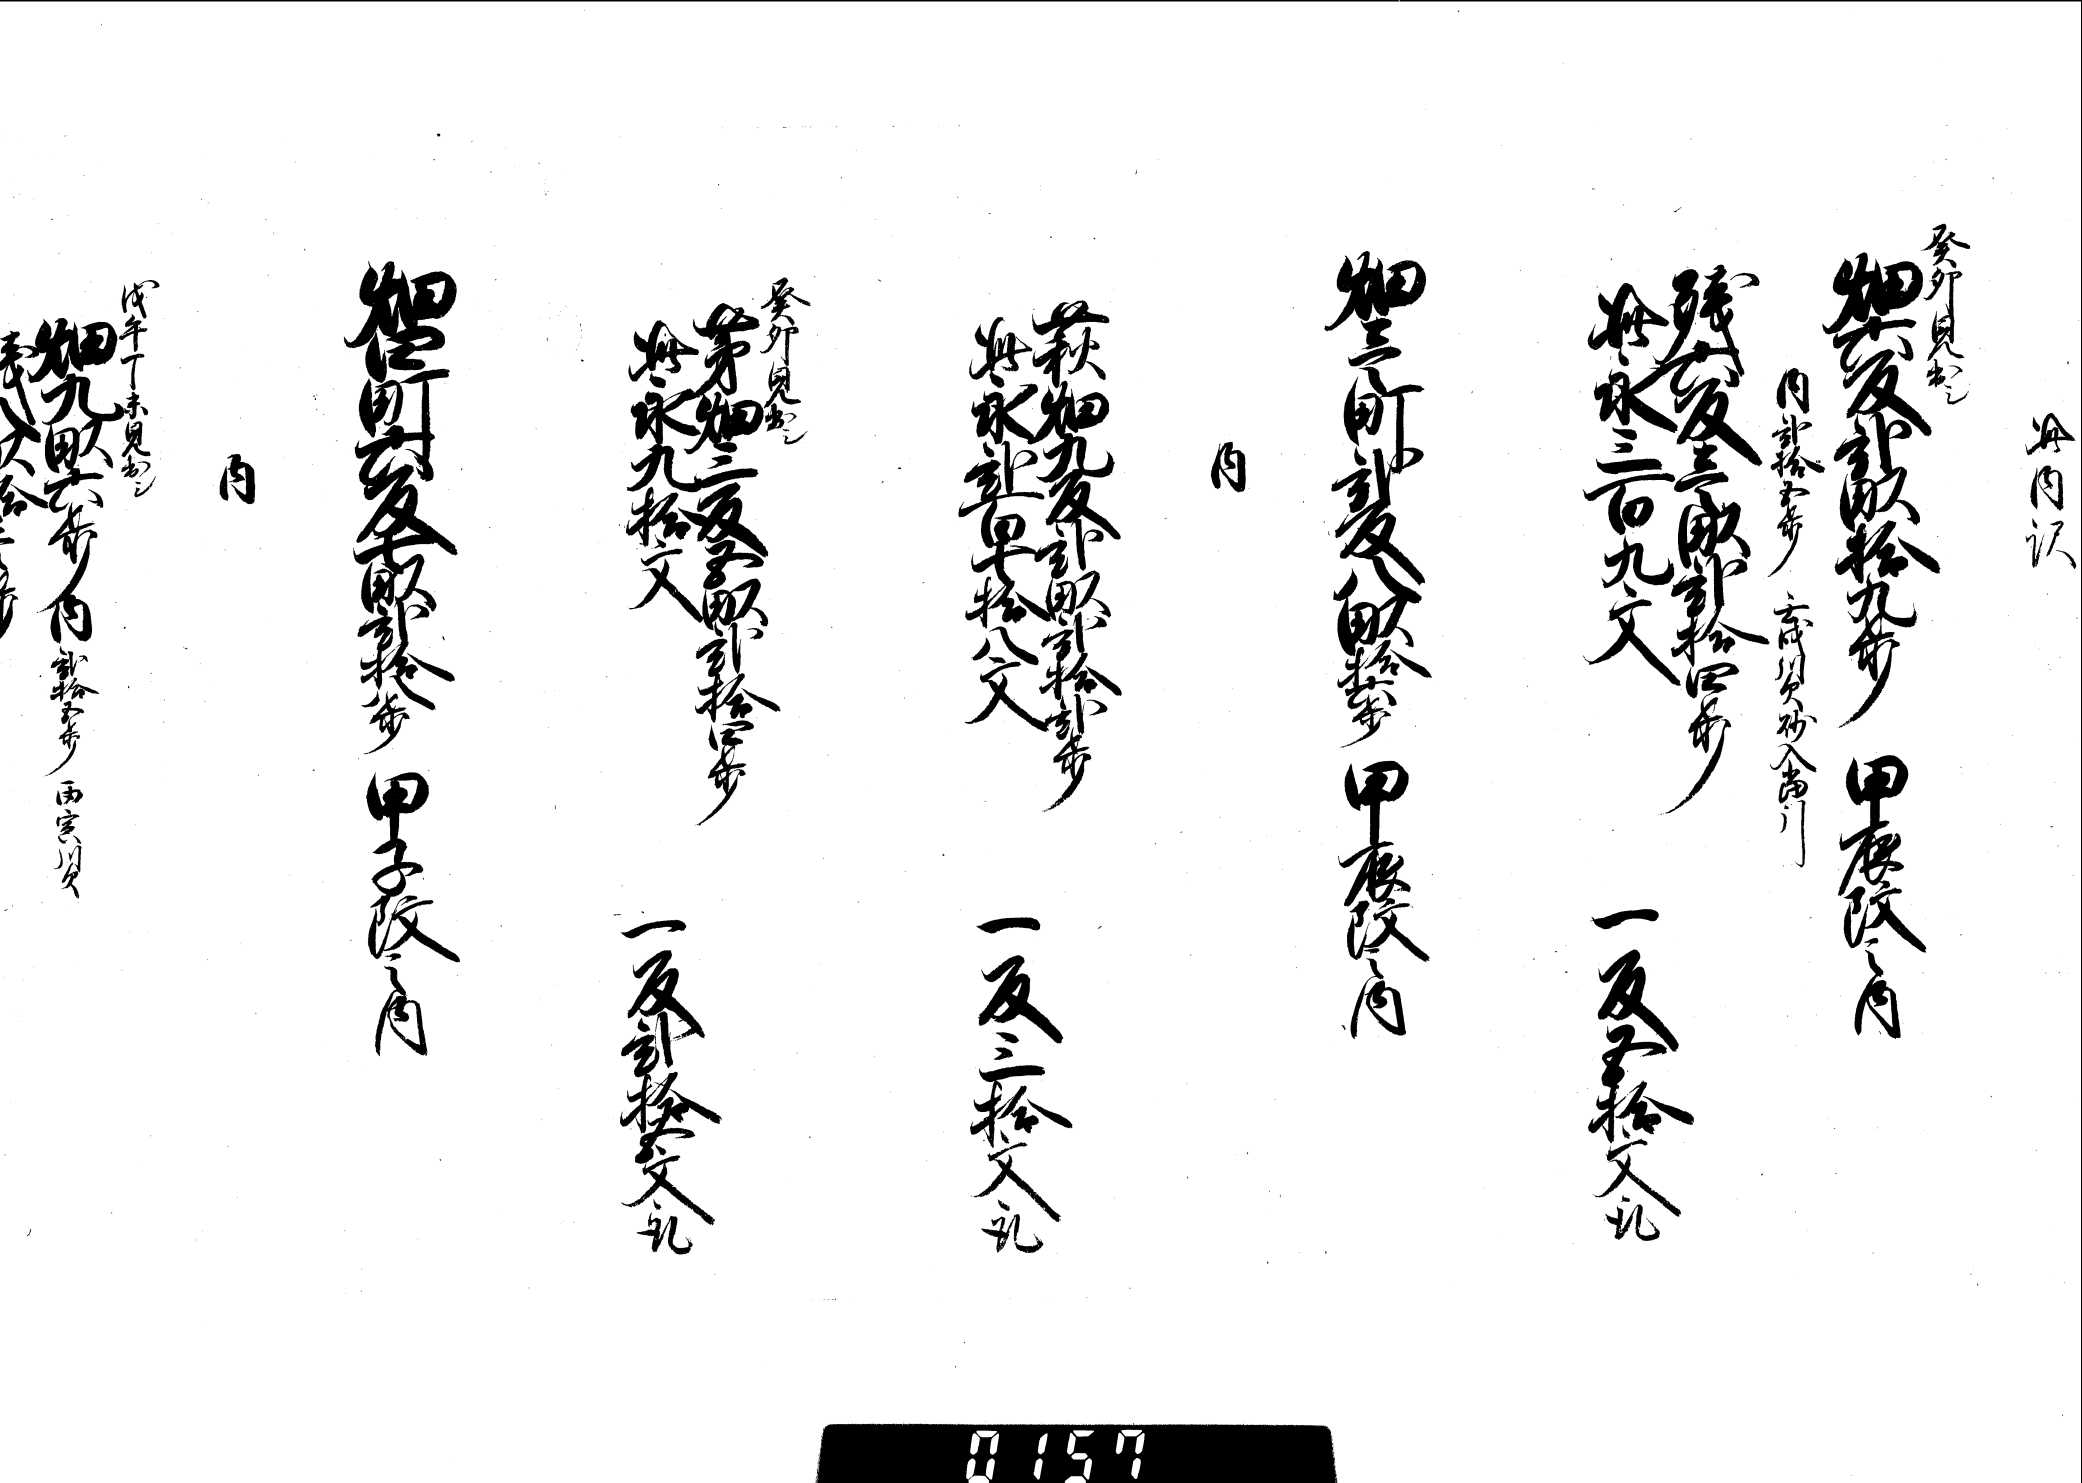 此内訳
癸卯見出し
畑六反弐畝拾九歩 甲辰改之内
内弐拾五歩 壬戌川欠砂入当引
残六反壱畝弐拾四歩
此永三百九文 一反五拾文取
畑三町弐反八畝拾六歩 甲辰改之内
内
萩畑九反弐畝弐拾弐歩
此永弐百七拾八文 一反三拾文取
癸卯見出し
茅畑三反五畝弐拾四歩
此永九拾文 一反弐拾五文取
畑四町六反七畝弐拾八歩 甲子改之内
内
戊午丁未見出し
畑九畝六歩 内弐拾五歩 丙寅川欠
残八畝拾